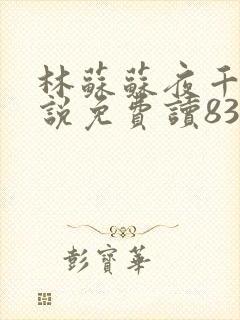 林蘇蘇夜千
說免費讀83
彭寶華